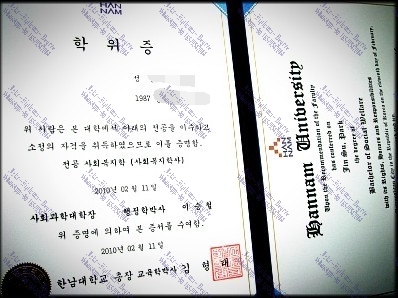 HAN
NAM
학위증
성
1987
위 사람은 본 대학에서 아래의 전공을 이수하고
소정의 자격을 취득하였으므로 이를 증명함.
전공 사회복지학 (사회복지학사)
2010년 02월 11일
사회과학대학장 행정학박사 이승철
위 증명에 의하여 본 증서를 수여함.
2010년 02월 11일
한남대학교 총장 교육학박사 김형태
HAN
NAM
Hannam University
Upon the Recommendation of the Faculty
has conferred on
Jin Su, Park
the degree of
Bachelor of Social Welfare
with its Rights, Honors and Responsibilities